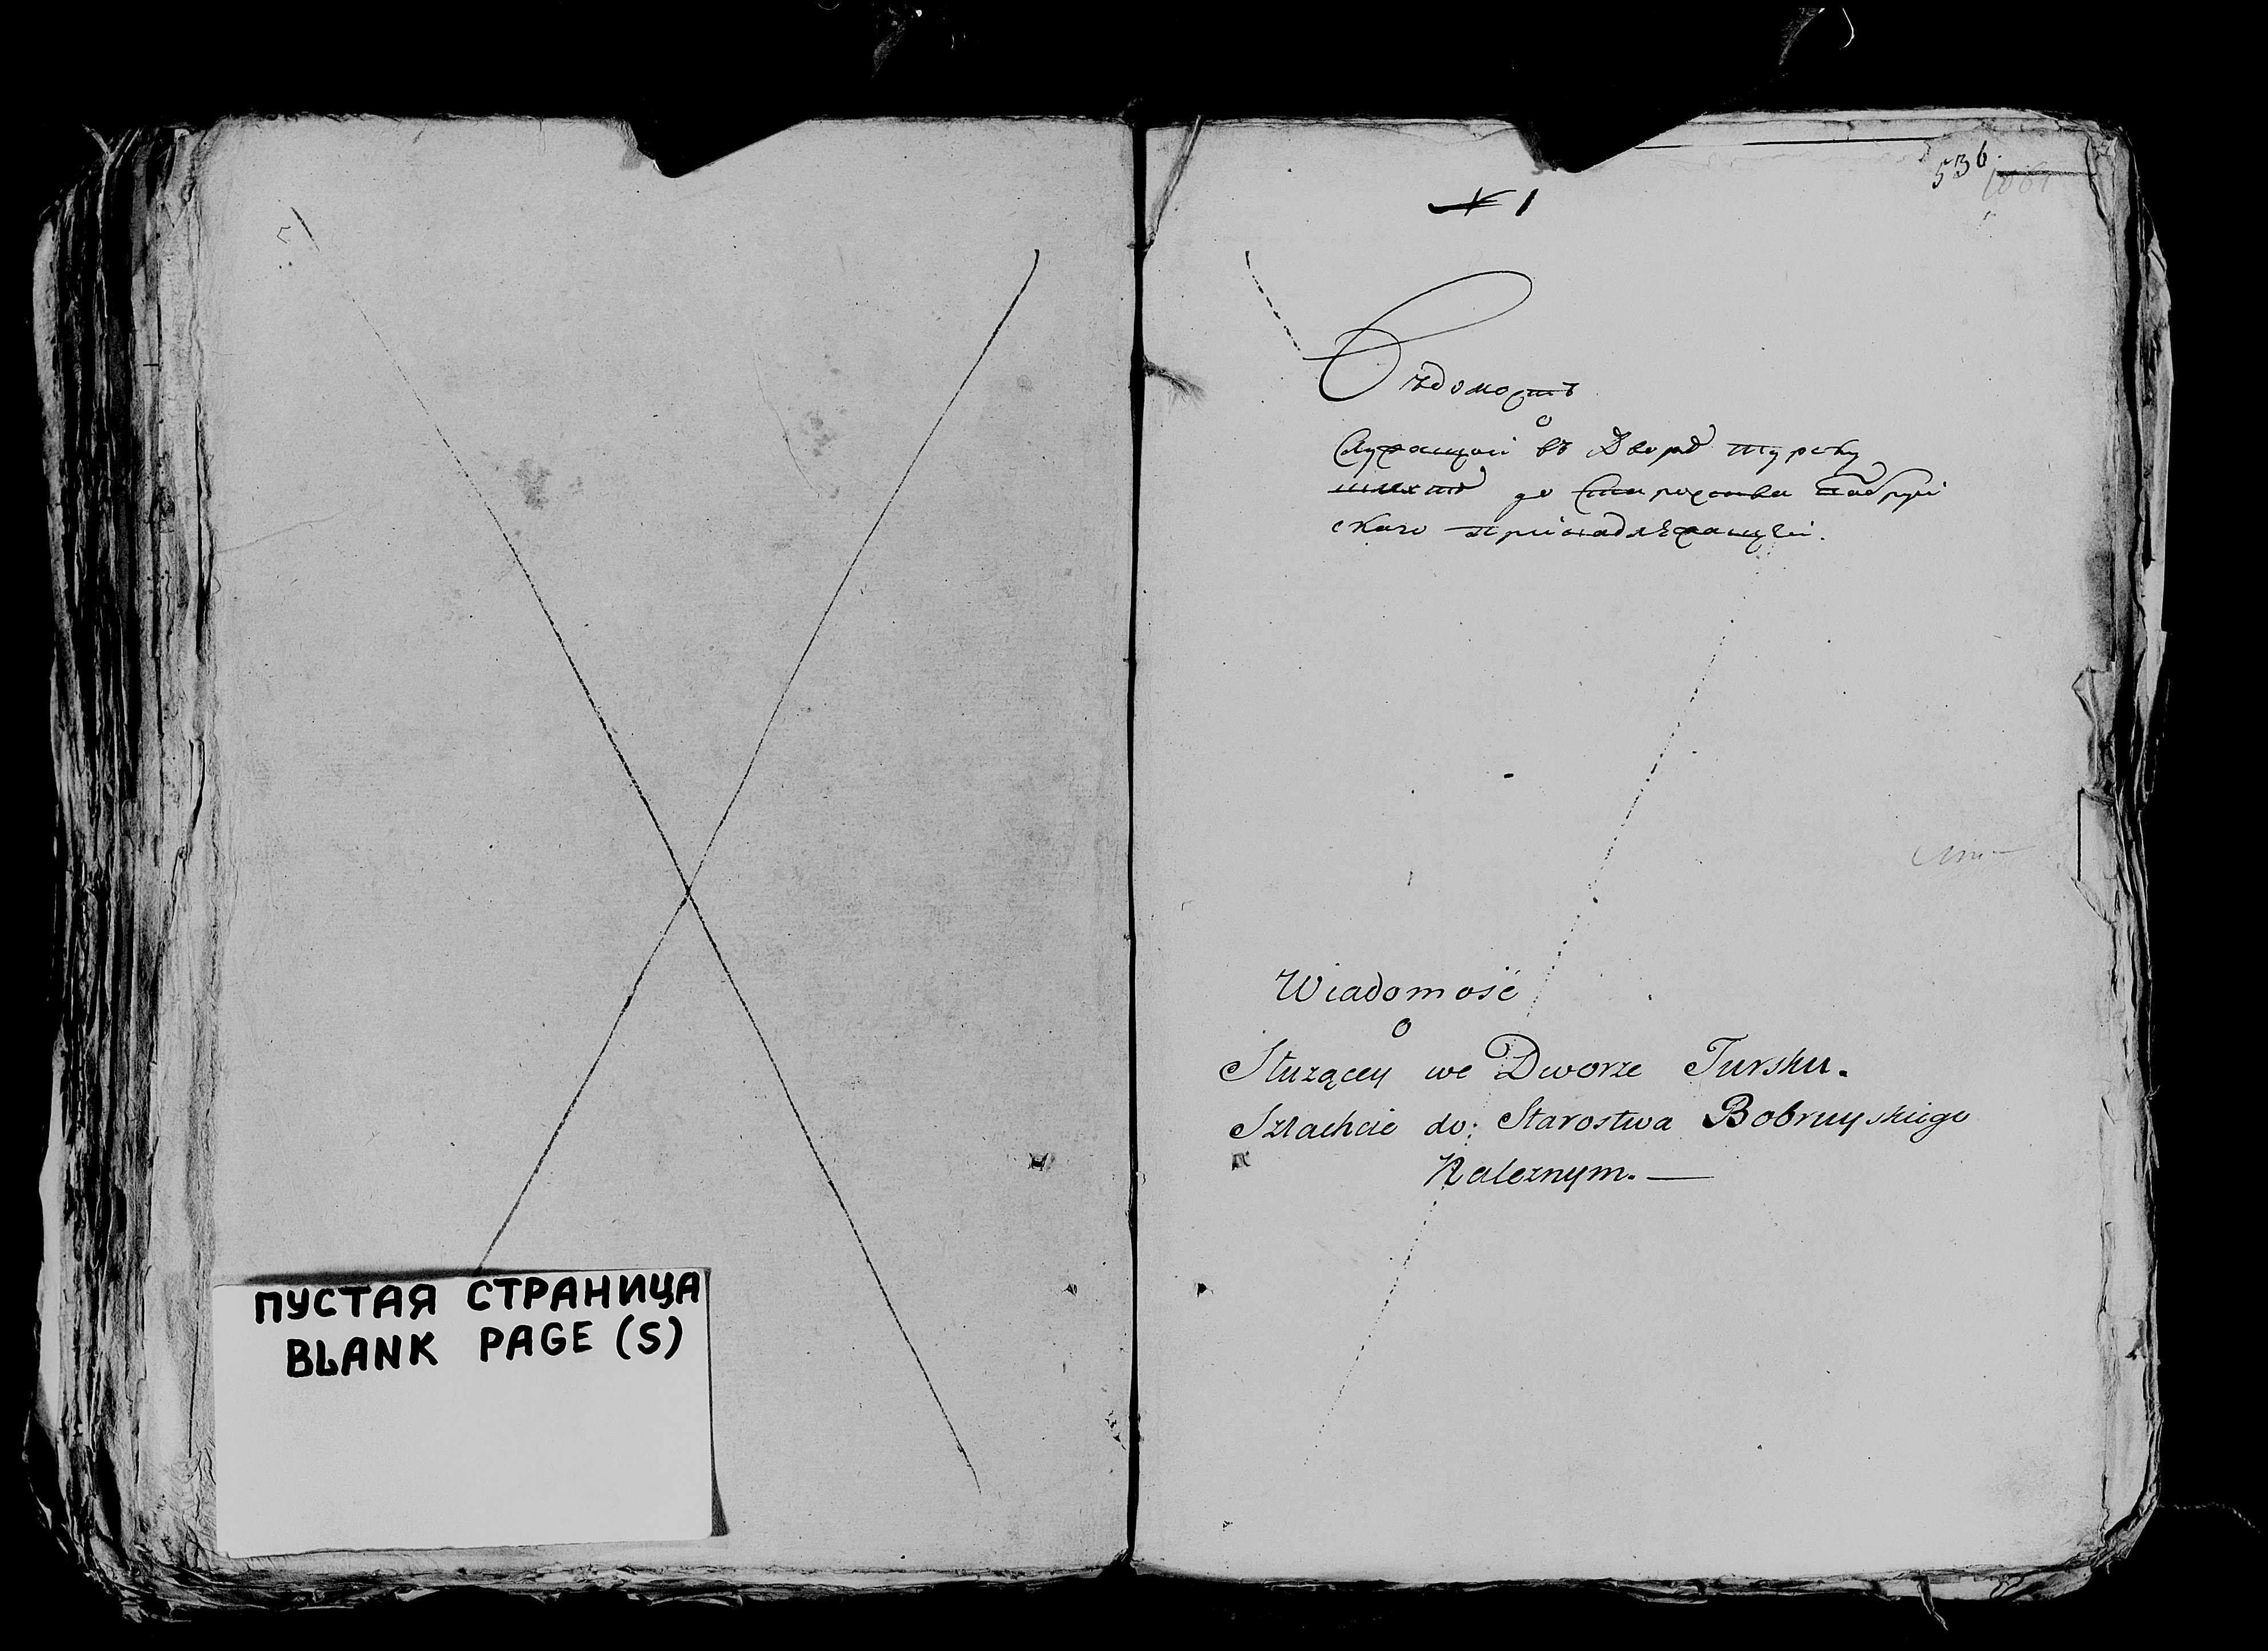 ПУСТАЯ СТРАНИЦА
BLANK PAGE (S)
536
1
Вѣдомость
о
Служащой въ Дворѣ Турску
шляхтѣ до Староства Бобруй
скаго принадлежащей.
Wiadomość
o
Służącey we Dworze Tursku.
Szlachcie do: Starostwa Bobruyskiego
Należnym. —